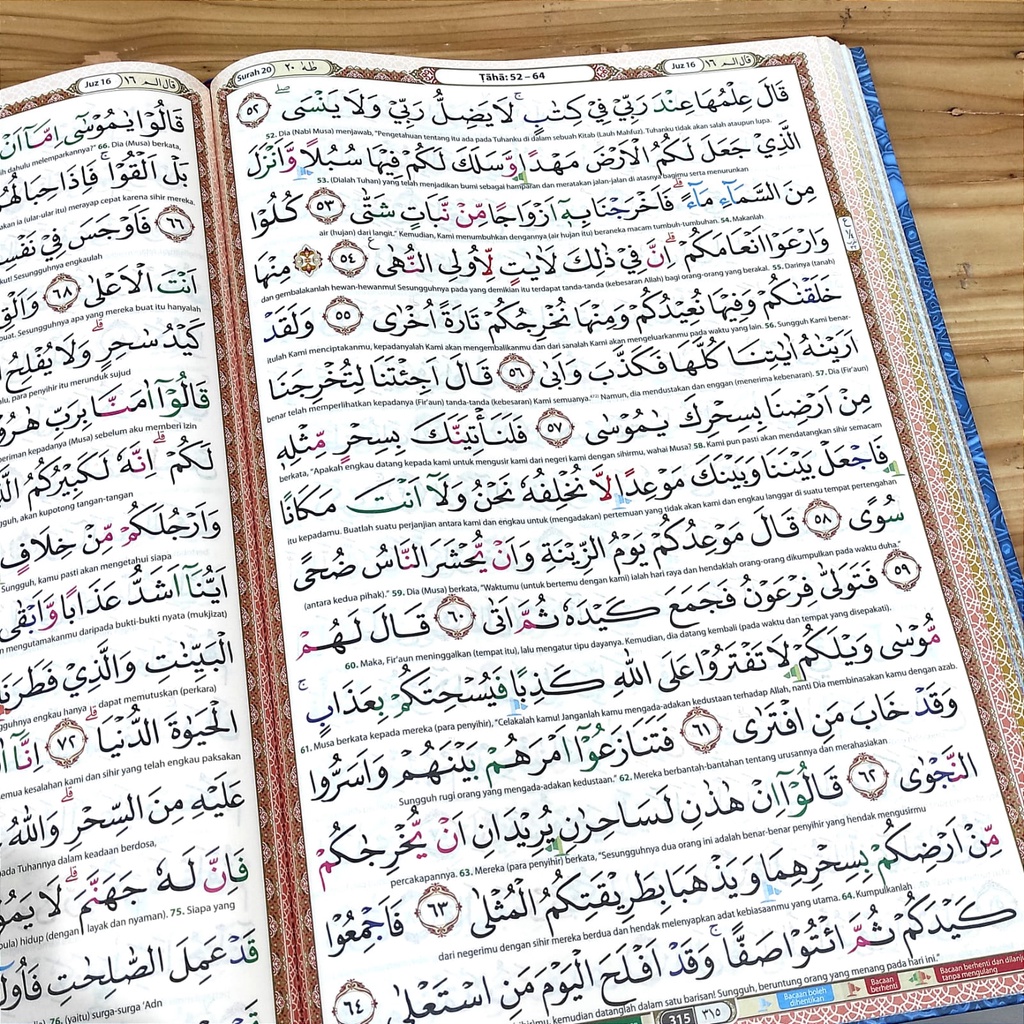 Surah 20 طٰهٰ ٢٠
Ṭāhā: 52 – 64
Juz 16 قال الم ١٦
قَالَ عِلْمُهَا عِنْدَ رَبِّيْ فِيْ كِتٰبٍۚ لَا يَضِلُّ رَبِّيْ وَلَا يَنْسَىۖ ٥٢
52. Dia (Nabi Musa) menjawab, "Pengetahuan tentang itu ada pada Tuhanku di dalam sebuah Kitab (Lauh Mahfuz). Tuhanku tidak akan salah ataupun lupa.
الَّذِيْ جَعَلَ لَكُمُ الْاَرْضَ مَهْدًا وَّسَلَكَ لَكُمْ فِيْهَا سُبُلًا وَّاَنْزَلَ
53. (Dialah Tuhan) yang telah menjadikan bumi sebagai hamparan dan meratakan jalan-jalan di atasnya bagimu serta menurunkan
مِنَ السَّمَاۤءِ مَاۤءًۗ فَاَخْرَجْنَا بِهٖٓ اَزْوَاجًا مِّنْ نَّبَاتٍ شَتّٰى ٥٣ كُلُوْا
air (hujan) dari langit." Kemudian, Kami menumbuhkan dengannya (air hujan itu) beraneka macam tumbuh-tumbuhan. 54. Makanlah
وَارْعَوْا اَنْعَامَكُمْۗ اِنَّ فِيْ ذٰلِكَ لَاٰيٰتٍ لِّاُولِى النُّهٰىࣖ ٥٤ ۞ مِنْهَا
dan gembalakanlah hewan-hewanmu! Sesungguhnya pada yang demikian itu terdapat tanda-tanda (kebesaran Allah) bagi orang-orang yang berakal. 55. Darinya (tanah)
خَلَقْنٰكُمْ وَفِيْهَا نُعِيْدُكُمْ وَمِنْهَا نُخْرِجُكُمْ تَارَةً اُخْرٰى ٥٥ وَلَقَدْ
itulah Kami menciptakanmu, kepadanyalah Kami akan mengembalikanmu dan dari sanalah Kami akan mengeluarkanmu pada waktu yang lain. 56. Sungguh Kami benar-
اَرَيْنٰهُ اٰيٰتِنَا كُلَّهَا فَكَذَّبَ وَاَبٰى ٥٦ قَالَ اَجِئْتَنَا لِتُخْرِجَنَا
benar telah memperlihatkan kepadanya (Fir'aun) tanda-tanda (kebesaran) Kami semuanya. Namun, dia mendustakan dan enggan (menerima kebenaran). 57. Dia (Fir'aun)
مِنْ اَرْضِنَا بِسِحْرِكَ يٰمُوْسٰى ٥٧ فَلَنَأْتِيَنَّكَ بِسِحْرٍ مِّثْلِهٖ
berkata, "Apakah engkau datang kepada kami untuk mengusir kami dari negeri kami dengan sihirmu, wahai Musa? 58. Kami pun pasti akan mendatangkan sihir semacam
فَاجْعَلْ بَيْنَنَا وَبَيْنَكَ مَوْعِدًا لَّا نُخْلِفُهٗ نَحْنُ وَلَآ اَنْتَ مَكَانًا
itu kepadamu. Buatlah suatu perjanjian antara kami dan engkau untuk (mengadakan) pertemuan yang tidak akan kami dan engkau langgar di suatu tempat pertengahan
سُوًى ٥٨ قَالَ مَوْعِدُكُمْ يَوْمُ الزِّيْنَةِ وَاَنْ يُّحْشَرَ النَّاسُ ضُحًى
(antara kedua pihak)." 59. Dia (Musa) berkata, "Waktumu (untuk bertemu dengan kami) ialah hari raya dan hendaklah orang-orang dikumpulkan pada waktu duha."
٥٩ فَتَوَلّٰى فِرْعَوْنُ فَجَمَعَ كَيْدَهٗ ثُمَّ اَتٰى ٦٠ قَالَ لَهُمْ
60. Maka, Fir'aun meninggalkan (tempat itu), lalu mengatur tipu dayanya. Kemudian, dia datang kembali (pada waktu dan tempat yang disepakati).
مُّوْسٰى وَيْلَكُمْ لَا تَفْتَرُوْا عَلَى اللّٰهِ كَذِبًا فَيُسْحِتَكُمْ بِعَذَابٍۚ
61. Musa berkata kepada mereka (para penyihir), "Celakalah kamu! Janganlah kamu mengada-adakan kedustaan terhadap Allah, nanti Dia membinasakan kamu dengan azab.
وَقَدْ خَابَ مَنِ افْتَرٰى ٦١ فَتَنَازَعُوْٓا اَمْرَهُمْ بَيْنَهُمْ وَاَسَرُّوا
Sungguh rugi orang yang mengada-adakan kedustaan." 62. Mereka berbantah-bantahan tentang urusannya dan merahasiakan
النَّجْوٰى ٦٢ قَالُوْٓا اِنْ هٰذٰنِ لَسٰحِرٰنِ يُرِيْدَانِ اَنْ يُّخْرِجٰكُمْ
percakapannya. 63. Mereka (para penyihir) berkata, "Sesungguhnya dua orang ini adalah benar-benar penyihir yang hendak mengusirmu
مِّنْ اَرْضِكُمْ بِسِحْرِهِمَا وَيَذْهَبَا بِطَرِيْقَتِكُمُ الْمُثْلٰى ٦٣ فَاَجْمِعُوْا
dari negerimu dengan sihir mereka berdua dan hendak melenyapkan adat kebiasaanmu yang utama. 64. Kumpulkanlah
كَيْدَكُمْ ثُمَّ ائْتُوْا صَفًّاۚ وَقَدْ اَفْلَحَ الْيَوْمَ مَنِ اسْتَعْلٰى ٦٤
kemudian datanglah dalam satu barisan! Sungguh, beruntung orang yang menang pada hari ini."
315 ٣١٥
Bacaan boleh dihentikan
Bacaan berhenti
Juz 16 قال الم ١٦
قَالُوْا يٰمُوْسٰٓى اِمَّآ اَنْ
dahulu melemparkannya?" 66. Dia (Musa) berkata,
بَلْ اَلْقُوْاۚ فَاِذَا حِبَالُهُمْ
akan ia (ular-ular itu) merayap cepat karena sihir mereka.
٦٦ فَاَوْجَسَ فِيْ نَفْسِهٖ
Sesungguhnya engkaulah
اَنْتَ الْاَعْلٰى ٦٨ وَاَلْقِ
Sesungguhnya apa yang mereka buat itu hanyalah
كَيْدُ سٰحِرٍۗ وَلَا يُفْلِحُ
para penyihir itu merunduk sujud
قَالُوْٓا اٰمَنَّا بِرَبِّ هٰرُوْنَ
kepadanya (Musa) sebelum aku memberi izin
لَكُمْۗ اِنَّهٗ لَكَبِيْرُكُمُ
akan kupotong tangan-tangan
وَاَرْجُلَكُمْ مِّنْ خِلَافٍ
Sungguh, kamu pasti akan mengetahui siapa
اَيُّنَآ اَشَدُّ عَذَابًا وَّاَبْقٰى
mengutamakanmu daripada bukti-bukti nyata (mukjizat)
الْبَيِّنٰتِ وَالَّذِيْ فَطَرَنَا
engkau hanya dapat memutuskan (perkara)
الْحَيٰوةَ الدُّنْيَاۗ ٧٢ اِنَّآ
kesalahan kami dan sihir yang telah engkau paksakan
عَلَيْهِ مِنَ السِّحْرِۗ وَاللّٰهُ
Tuhannya dalam keadaan berdosa,
فَاِنَّ لَهٗ جَهَنَّمَۗ لَا يَمُوْتُ
hidup (dengan layak dan nyaman). 75. Siapa yang
قَدْ عَمِلَ الصّٰلِحٰتِ
76. (yaitu) surga-surga 'Adn